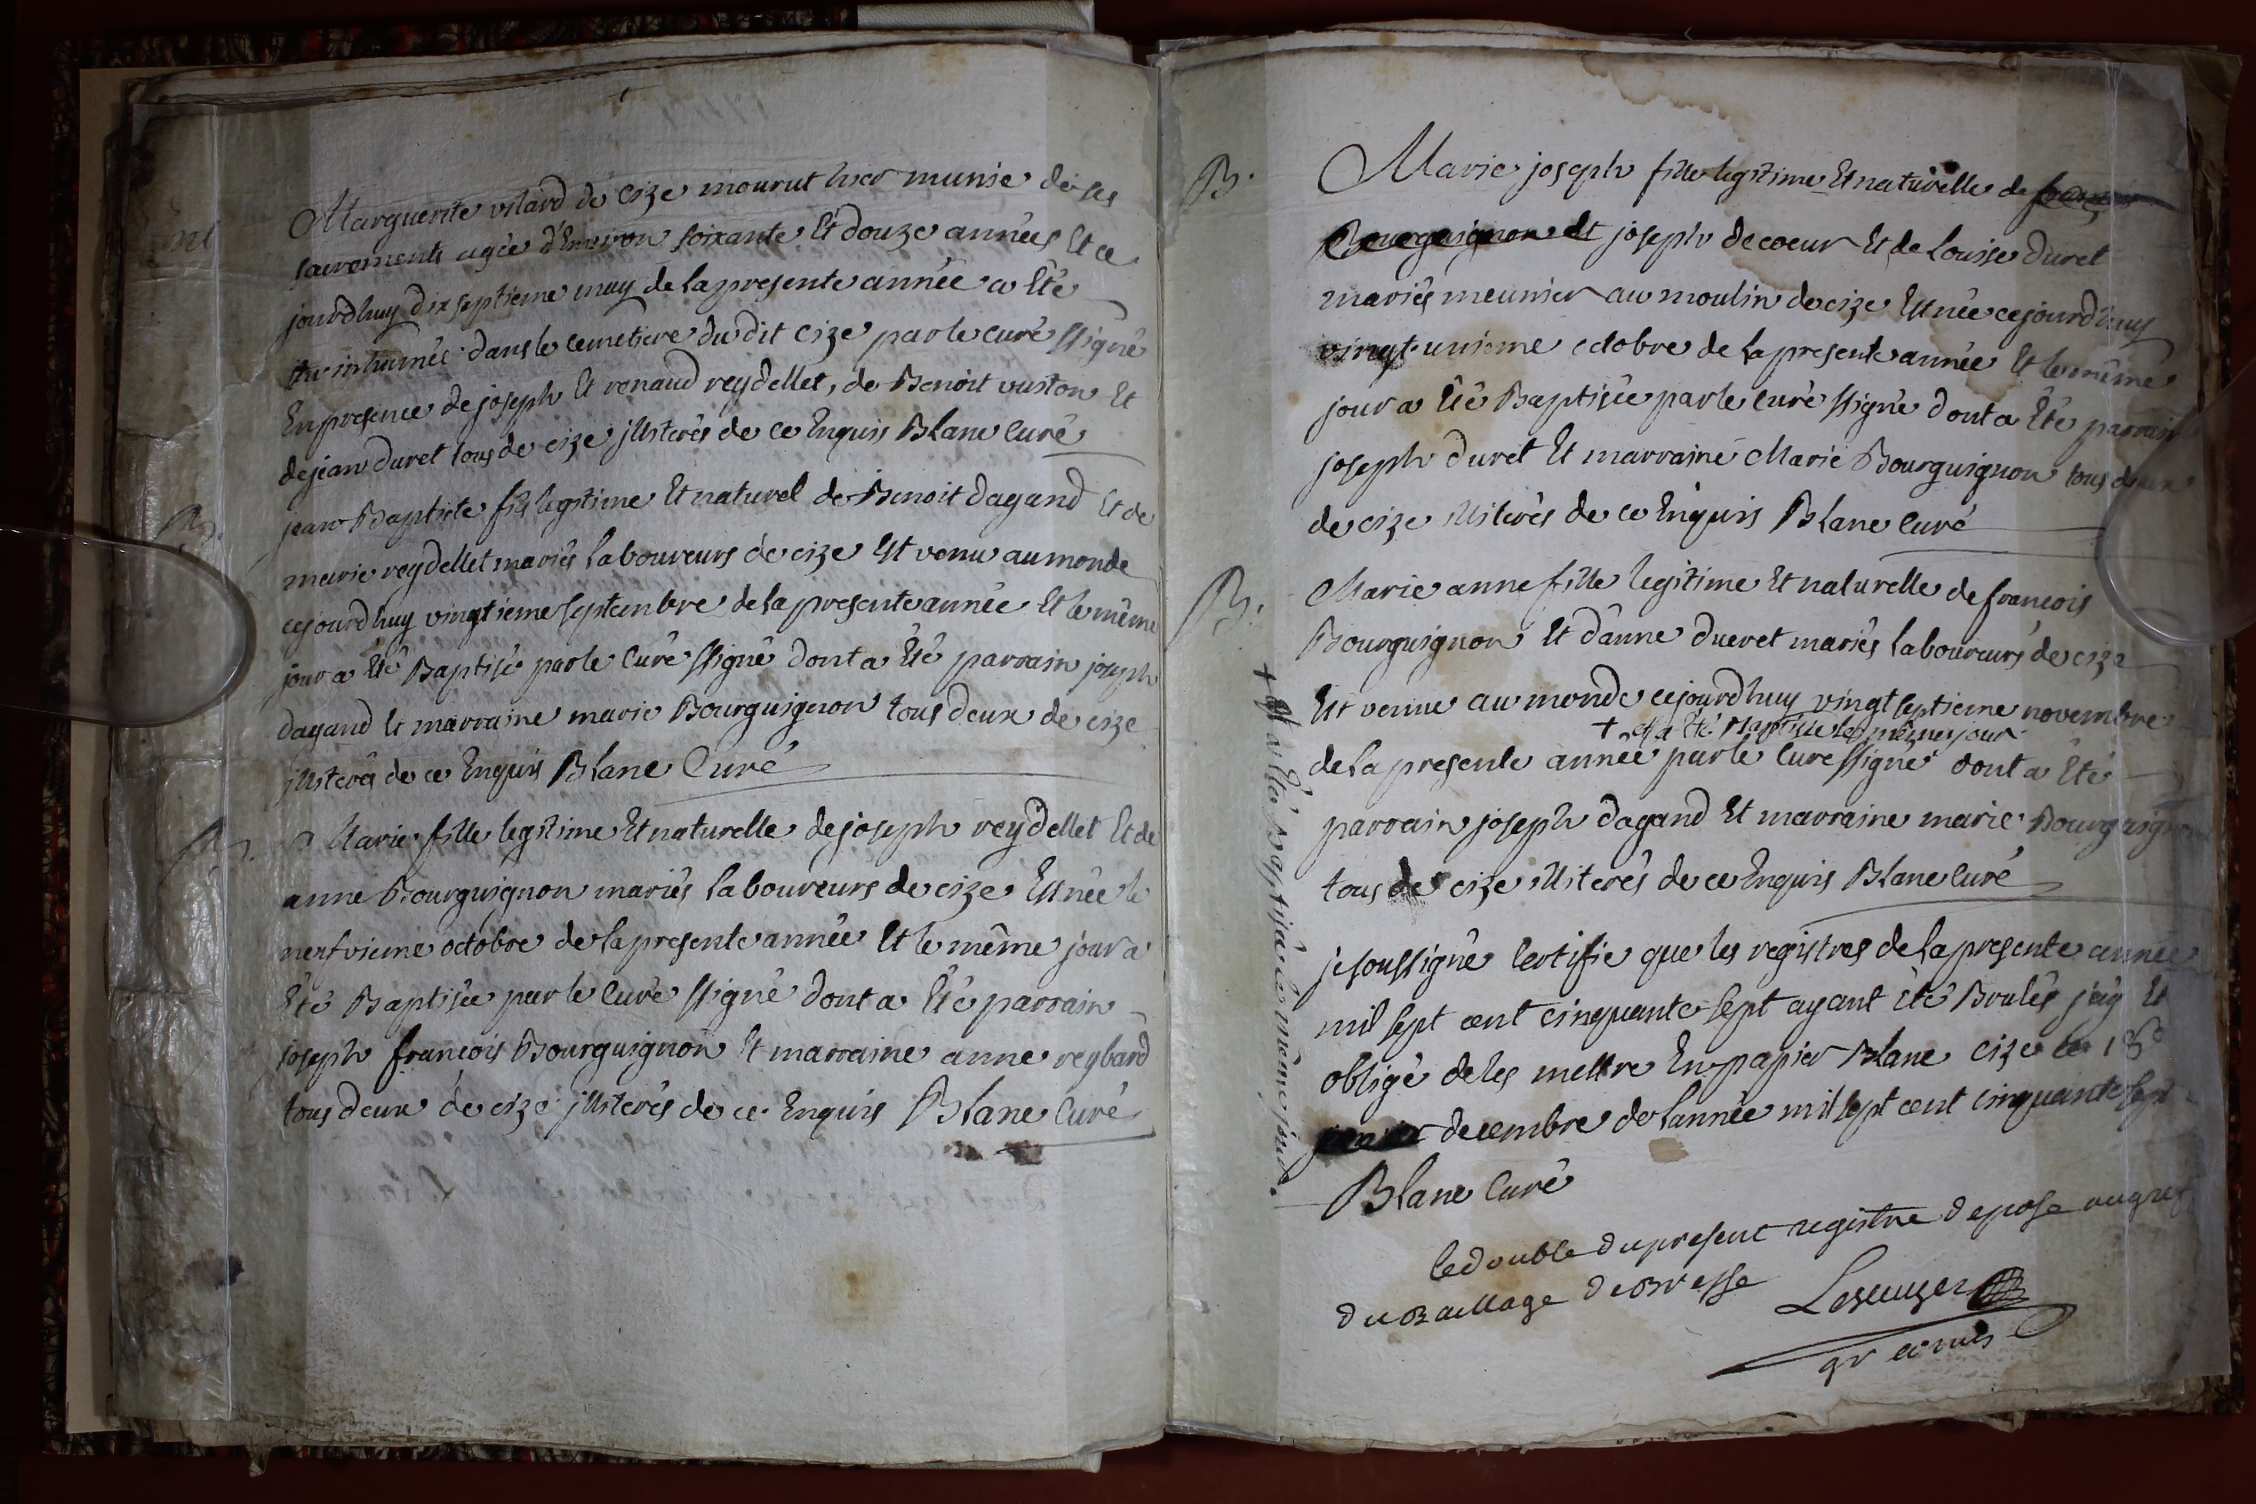 mt
Marguerite vilard de cize mourut hier munie de ses
sacrements agée d'Environ soixante Et douze années Et ce
jourdhuy dix septieme may de la presente année a Eté
inhumée dans le cemetiere du dit cize par le curé ssigné
En presence de joseph Et renaud reydellet, de Benoit vuiton Et
de jean duret tous de cize illiterés de ce Enquis Blanc Curé
B.
jean Baptiste fils legitime Et naturel de Benoit dagand Et de
marie reydellet mariés laboureurs de cize Est venu au monde
cejourdhuy vingtieme septembre de la presente année Et le même
jour a Eté Baptisé par le Curé ssigné dont a Eté parrain joseph
dagand Et marraine marie Bourguignon tous deux de cize
illiterés de ce Enquis Blanc Curé
B.
Marie fille legitime Et naturelle de joseph reydellet Et de
anne Bourguignon mariés laboureurs de cize Est née le
neufvieme octobre de la presente année Et le même jour a
Eté Baptisée par le Curé ssigné dont a Eté parrain
joseph francois Bourguignon Et marraine anne reybard
tous deux de cize illiterés de ce Enquis Blanc Curé
B.
Marie joseph fille legitime Et naturelle de francois
Bourguignon Et joseph decoeur Et de Louise duret
mariés meunier au moulin de cize Est née cejourdhuy
vingt-unieme octobre de la presente année Et le même
jour a Eté Baptisée par le Curé ssigné dont a Eté parrain
joseph duret Et marraine Marie Bourguignon tous deux
de cize illiterés de ce Enquis Blanc Curé
B.
Marie anne fille legitime Et naturelle de francois
Bourguignon Et d'anne dueret mariés laboureurs de cize
Est venue au monde cejourdhuy vingt septieme novembre
+ Et a Eté Baptisée le même jour
de la presente année par le Curé ssigné dont a Eté
parrain joseph dagand Et marraine marie Bourguignon
tous de cize illiterés de ce Enquis Blanc Curé
+ Et a Eté Baptisée le même jour.
je soussigné Certifie que les registres de la presente année
mil sept cent cinquante-sept ayant été Brulés j'ay Et
obligé de les mettre En papier Blanc cize ce 18e
janvier decembre de l'année mil sept cent cinquante sept
Blanc Curé
le double du present registre depose au gref
du Baillage de Bresse
gr commis